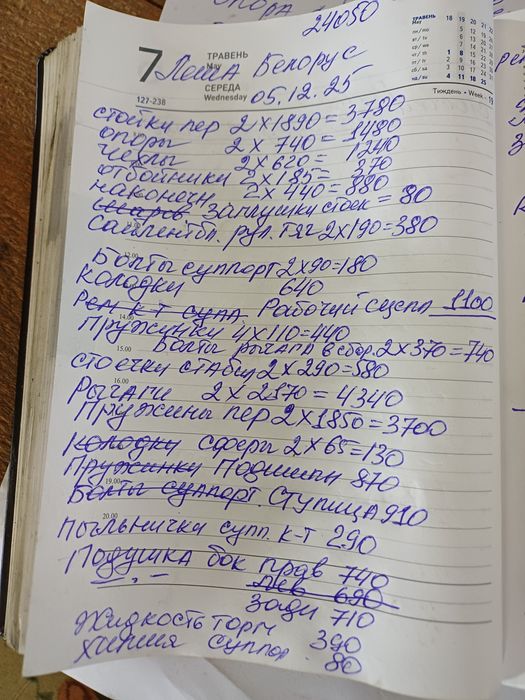 24050
7
ТРАВЕНЬ
May
СЕРЕДА
Wednesday
127-238
ТРАВЕНЬ 18 19 20 21
Тиждень • Week • 19
Леша Белорус
05.12.25
стойки пер 2×1890=3780
опоры 2×740=1480
Чехлы 2×620=1240
отбойники 2×185=370
наконечн 2×440=880
шаров Заглушки стоек=80
Сайлентбл. рул.тяг 2×190=380
Болты суппорт 2×90=180
Колодки 640
Рем к-т супп. Рабочий сцепл 1100
14.00
Пружинки 4×110=440
Болты рычага в сбор. 2×370=740
15.00
стоечки стабил 2×290=580
16.00
Рычаги 2×2170=4340
Пружины пер 2×1850=3700
Колодки сферы 2×65=130
Пружинки Подшипн 870
19.00
Болты суппорт. Ступица 910
20.00
Пыльнички супп. к-т 290
Подушка бок прав 740
лев 690
задн 710
Жидкость торм 390
химия суппор 80